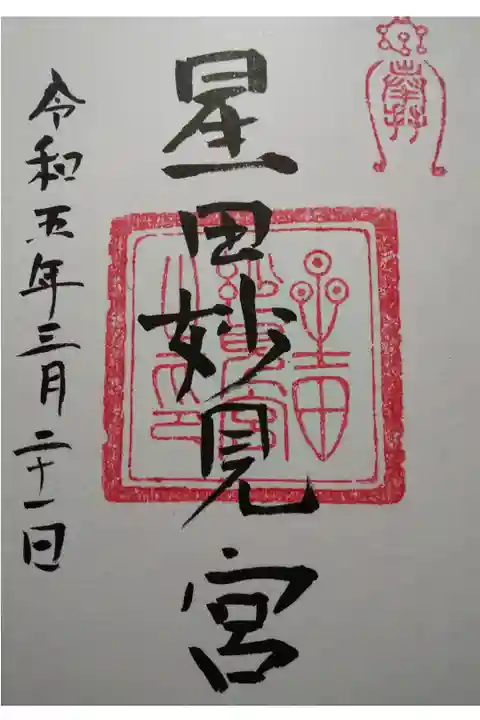 奉拝
星田妙見宮
令和五年三月二十一日